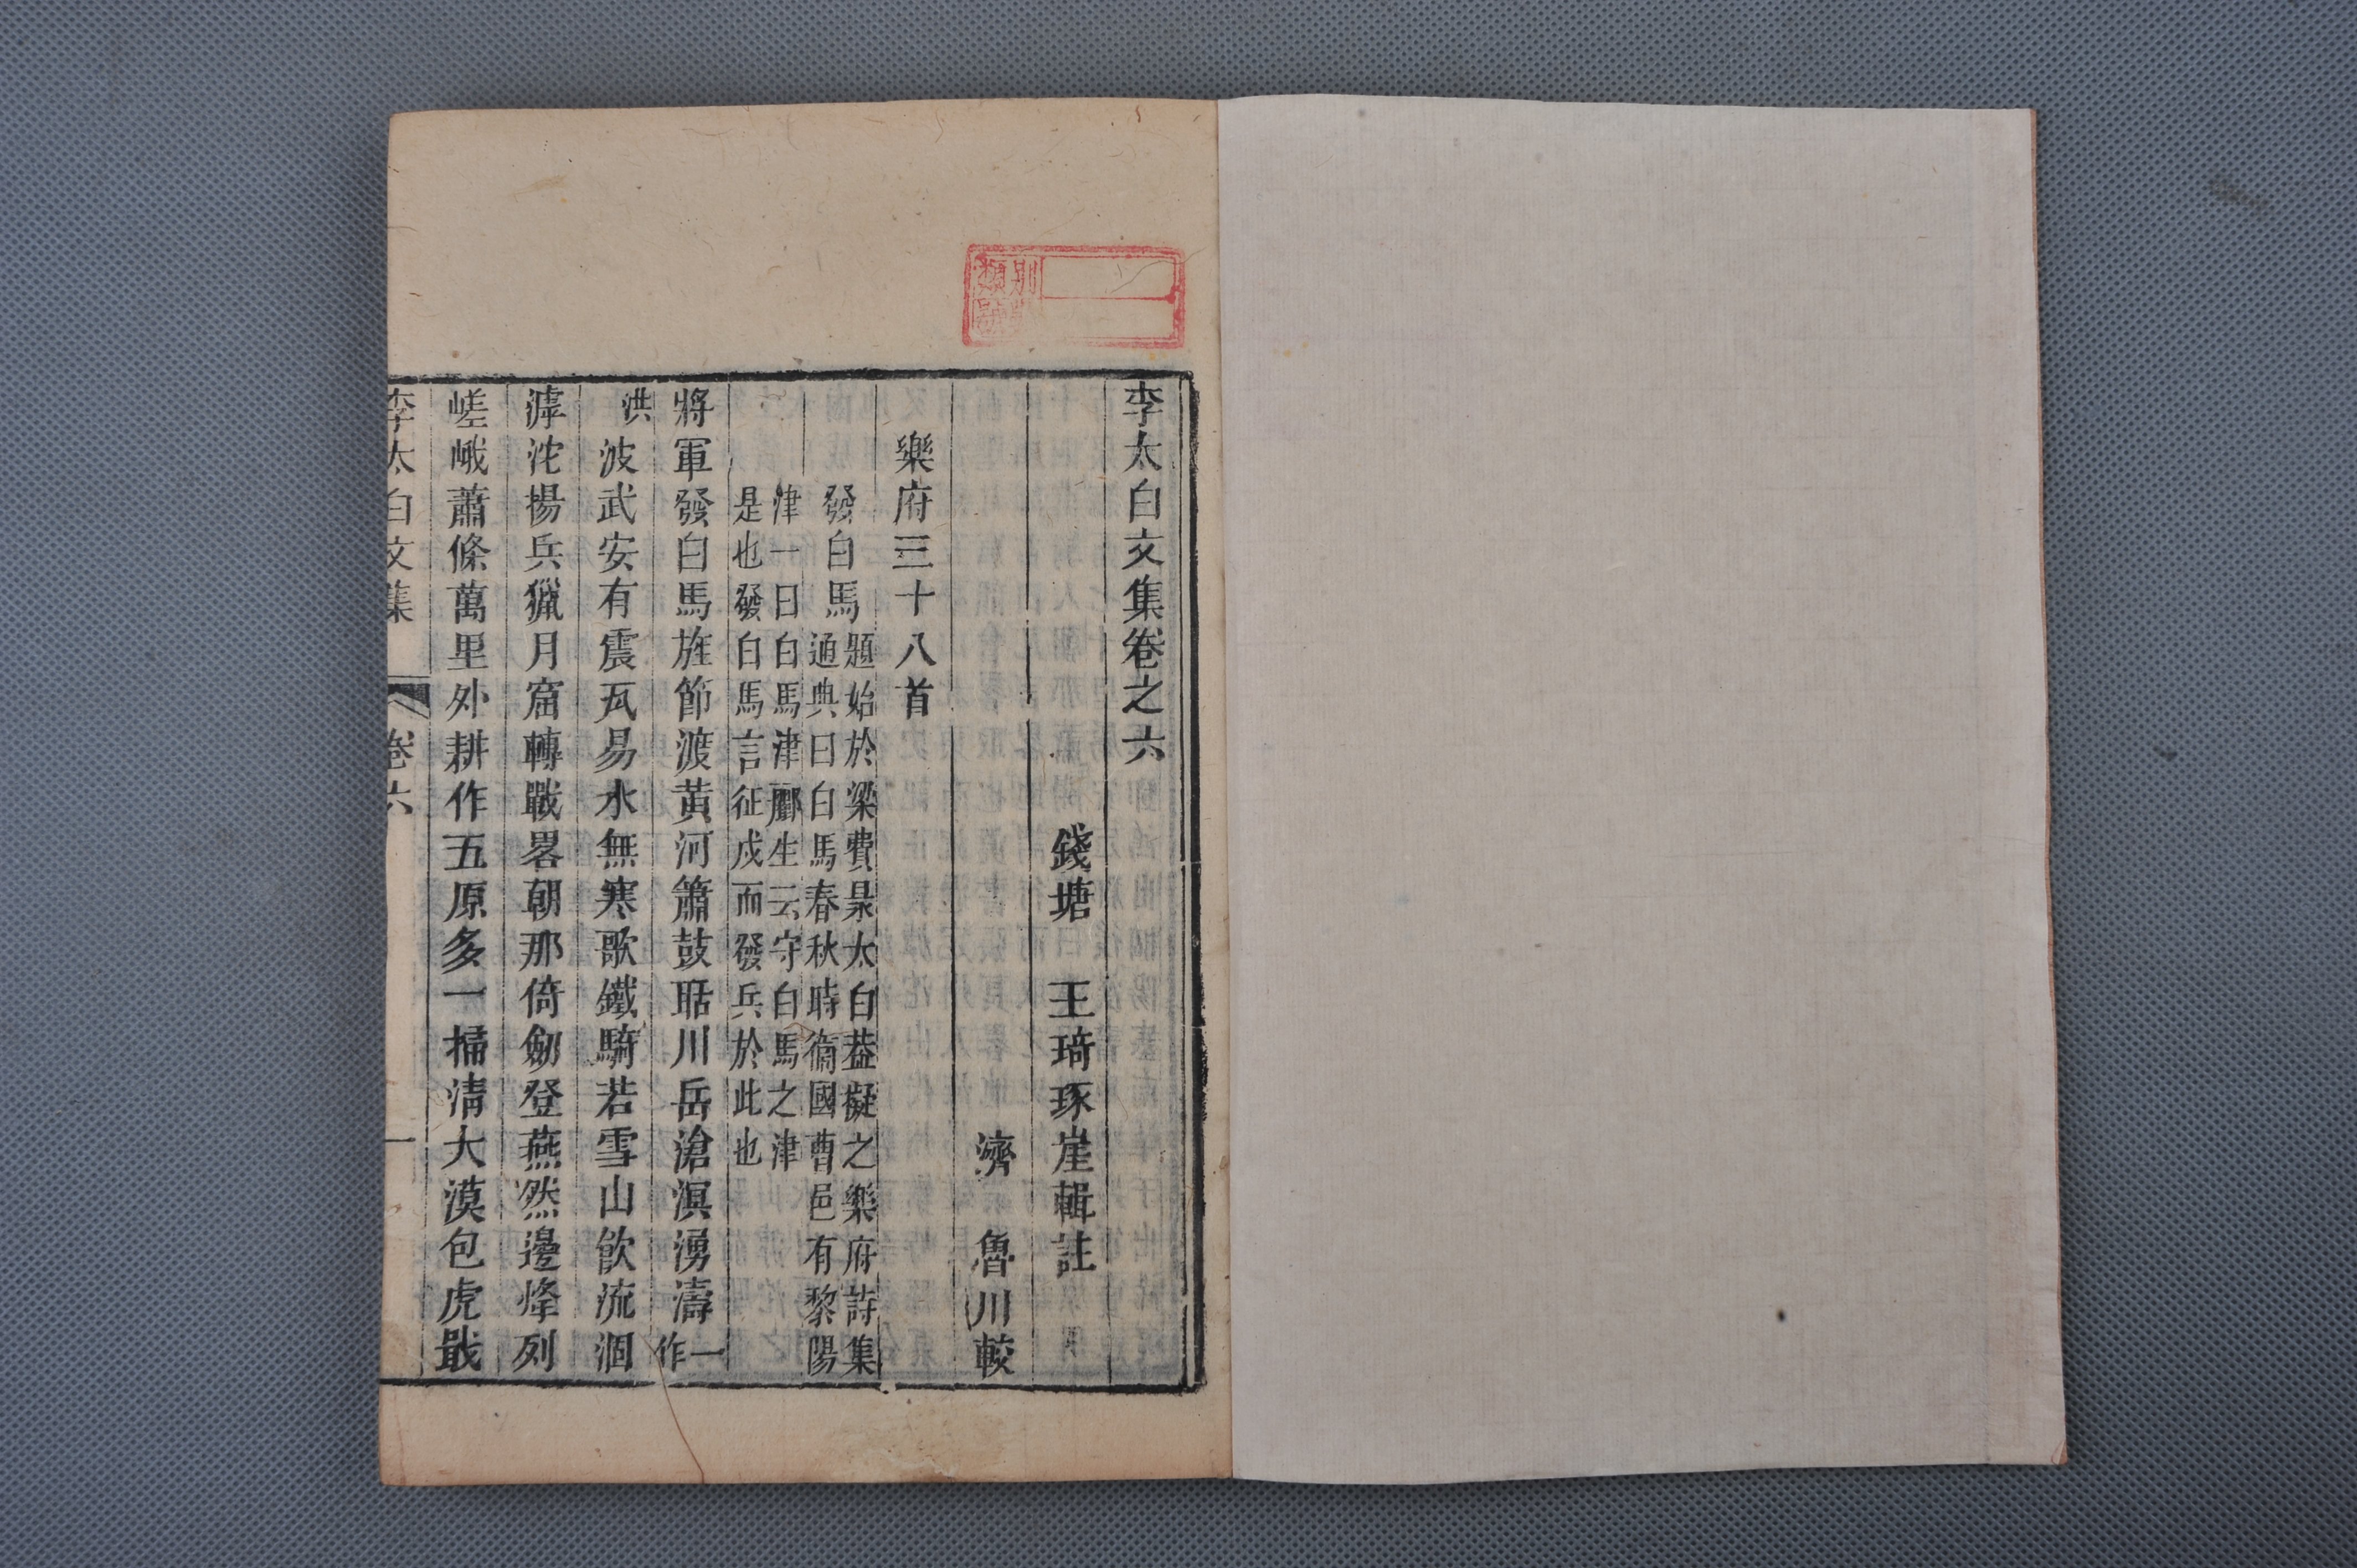 李太白文集卷之六
錢塘 王琦琢崖輯註
濟 魯川較
樂府三十八首
發白馬
題始於梁費昶太白葢擬之樂府詩集
通典曰白馬春秋時衞國曹邑有黎陽
津一曰白馬津酈生云守白馬之津
是也發白馬言征戍而發兵於此也
將軍發白馬旌節渡黃河簫鼓聒川岳滄溟湧濤一作
洪波武安有震瓦易水無寒歌鐵騎若雪山飲流涸
滹沱揚兵獵月窟轉戰畧朝那倚劒登燕然邊烽列
嵯峨蕭條萬里外耕作五原多一掃清大漠包虎戢
李太白文集 卷六 一
類別